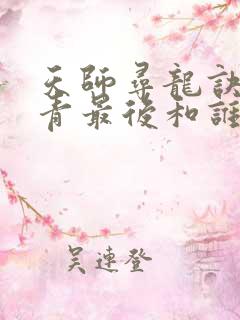 天師尋龍訣
青最後和誰
吳連登